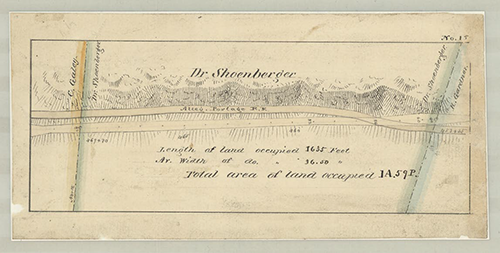 No. 15
Dr. Shoenberger
Dr. Shoenberger
Dr. Shoenberger
Alleg. Portage R. R.
Length of land occupied 1635 Feet
Av. Width of do. " 36.50 "
Total area of land occupied 1A.59P.